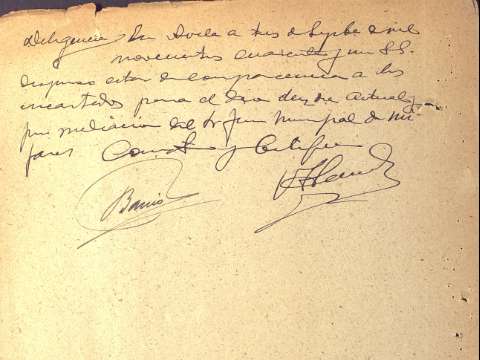 Diligencia. En Avila a tres de Sepbre de mil
novecientos cuarenta y un S.S.
dispuso citar de comparecencia a los
encartados para el dia del actual
por mediacion del Sr Juez Municipal de Mi
jares Consta y Certifico
Barrio